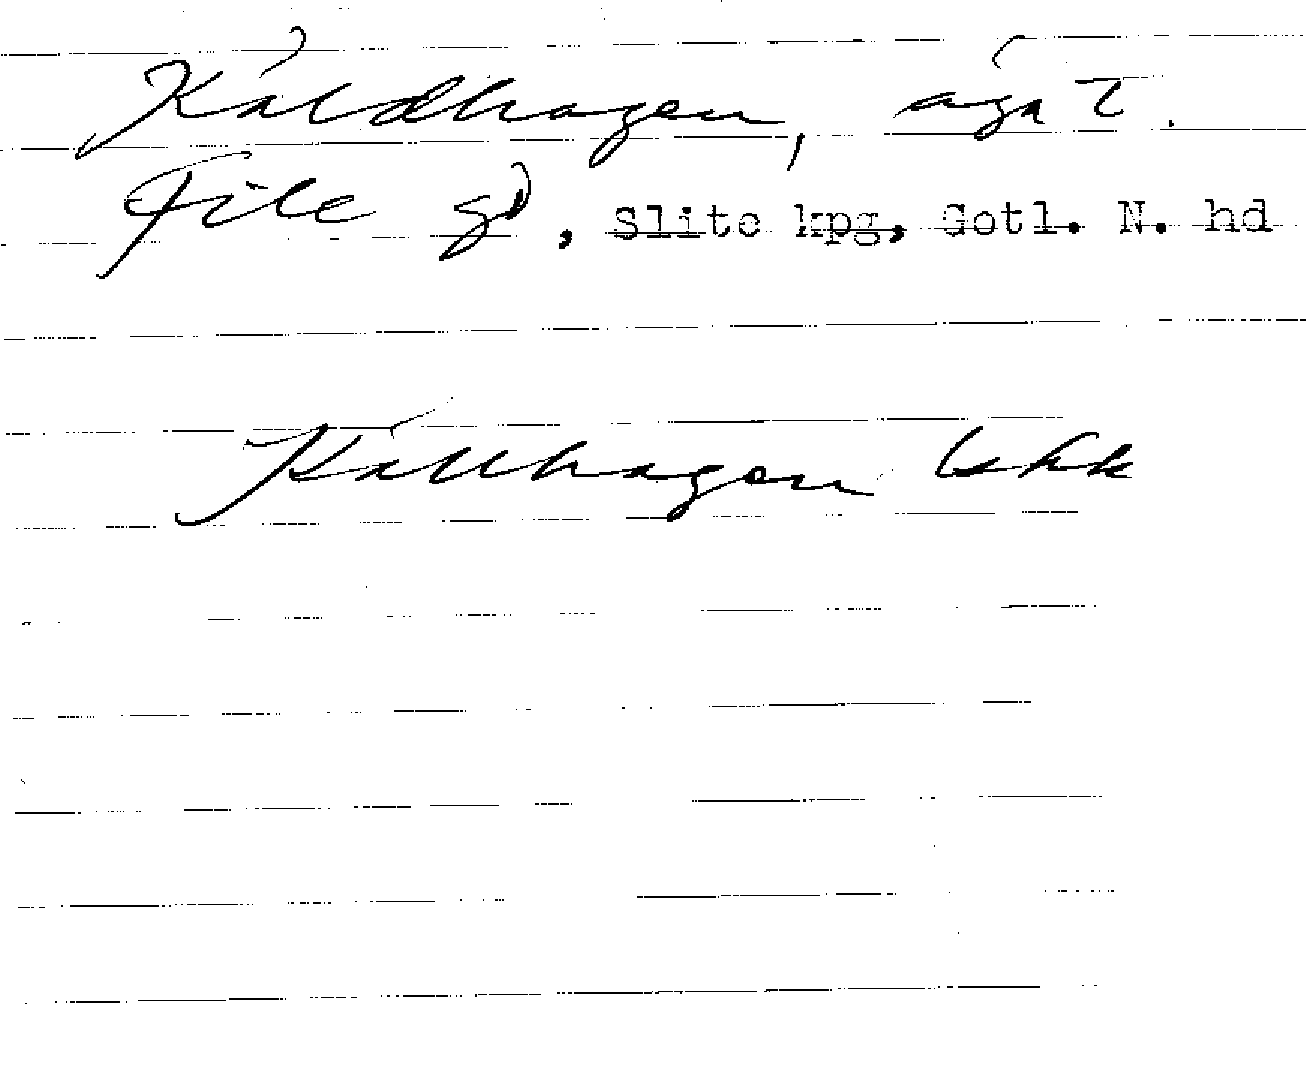 Kåldhagen, äga t.
File gd, Slite kpg, Gotl. N. hd
Källhagen bskk